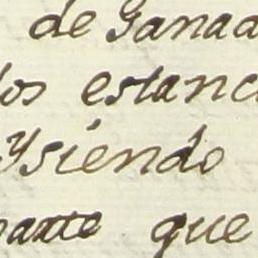 de Ganad
los estanc
Ysiendo
parte que